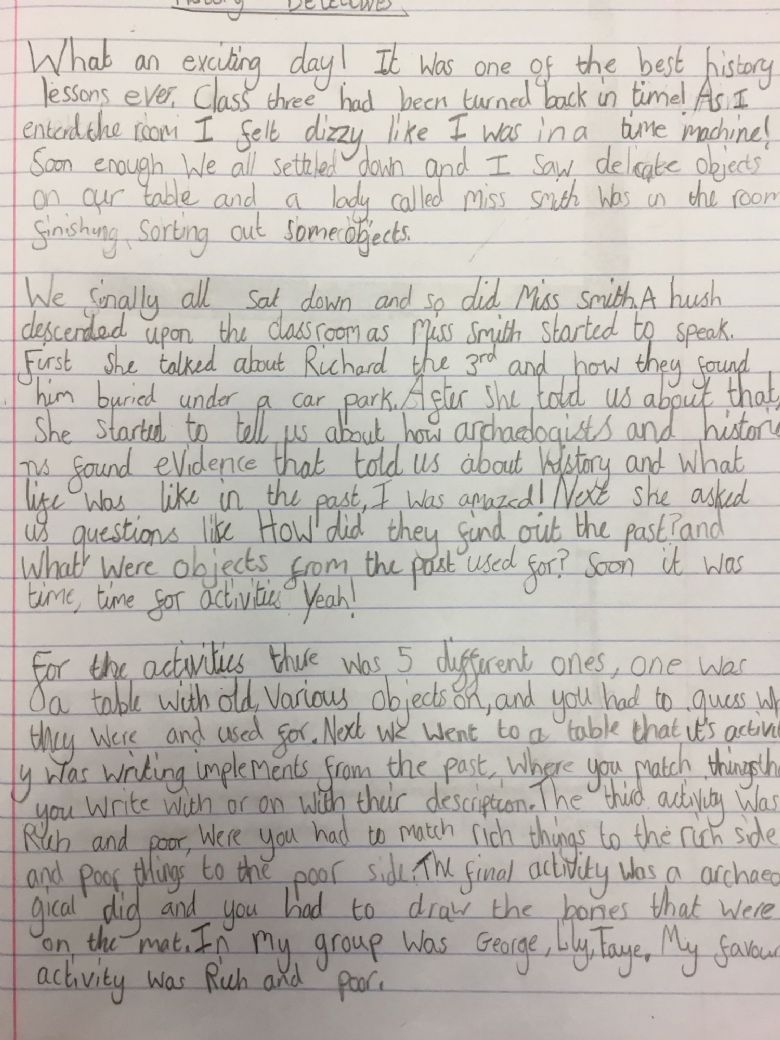 History Detectives
What an exciting day! It was one of the best history
lessons ever. Class three had been turned back in time! As I
enterd the room I felt dizzy like I was in a time machine!
Soon enough We all settled down and I saw delicate objects
on our table and a lady called Miss smith Was in the room
finishing sorting out some objects.
We finally all sat down and so did Miss smith. A hush
descended upon the classroom as Miss Smith started to speak.
First she talked about Richard the 3rd and how they found
him buried under a car park. After she told us about that,
She started to tell us about how archaeologists and histori
ns found evidence that told us about history and what
life was like in the past, I was amazed! Next she asked
us questions like How did they find out the past? and
What were objects from the past used for? Soon it was
time, time for activities Yeah!
For the activities there was 5 different ones, one was
a table with old, various objects on, and you had to guess wh
they were and used for. Next we went to a table that it's activi
y was writing implements from the past, where you match things th
you write with or on with their description. The third activity was
Rich and poor, Were you had to match rich things to the rich side
and poor things to the poor side. The final activity was a archaeo
gical dig and you had to draw the bones that were
on the mat. In my group was George, Lily, Faye. My favou
activity was Rich and poor.